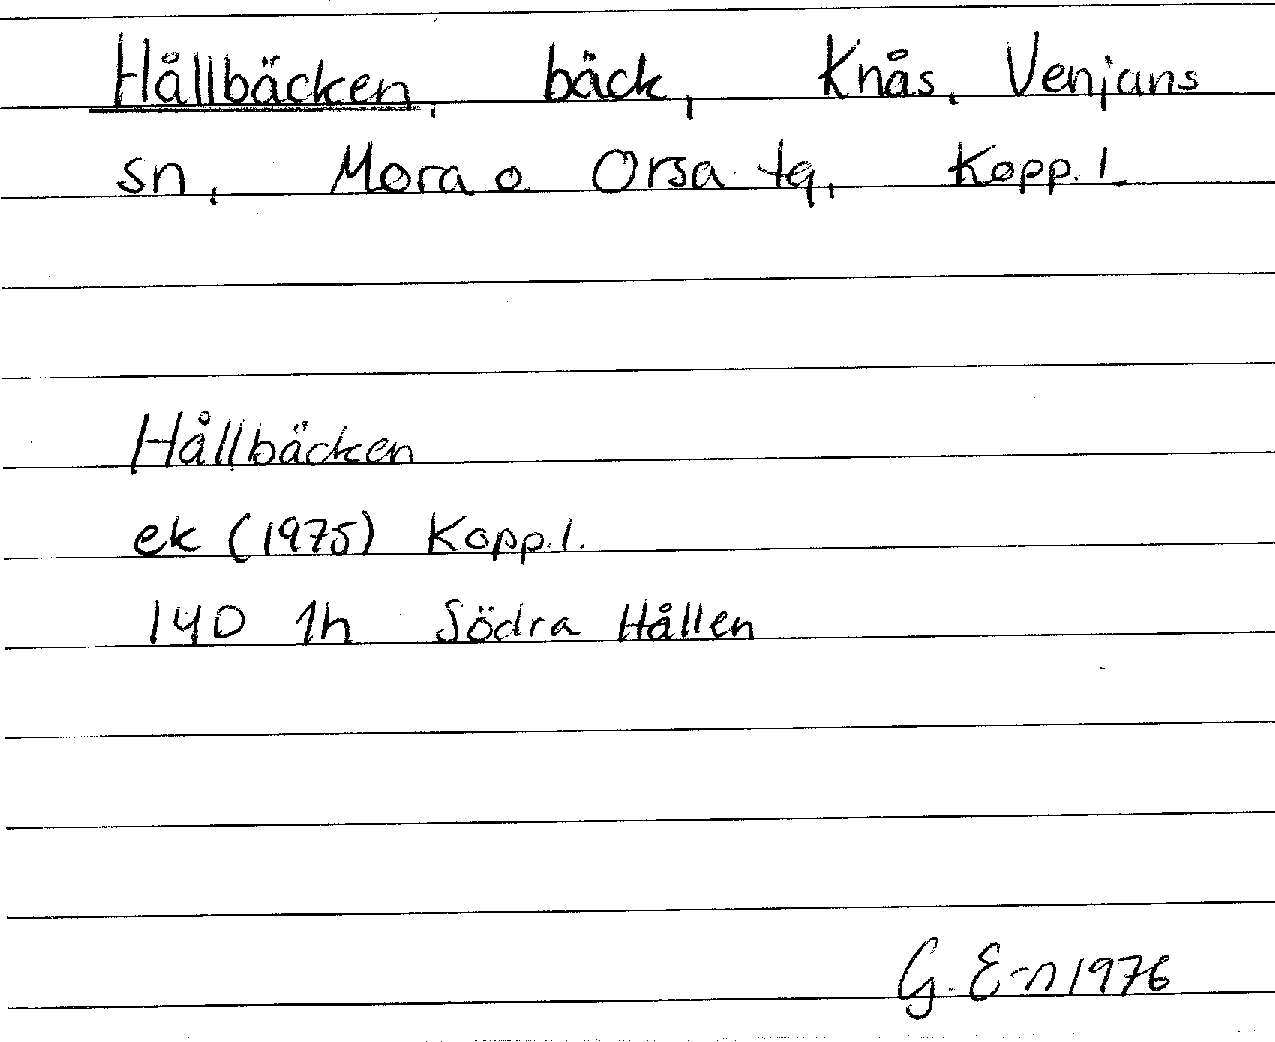 Hållbäcken, bäck, Knås, Venjans
sn, Mora o Orsa tg, Kopp. l.
Hållbäcken
ek (1975) Kopp. l.
14D 1h Södra Hållen
G. E-n 1976